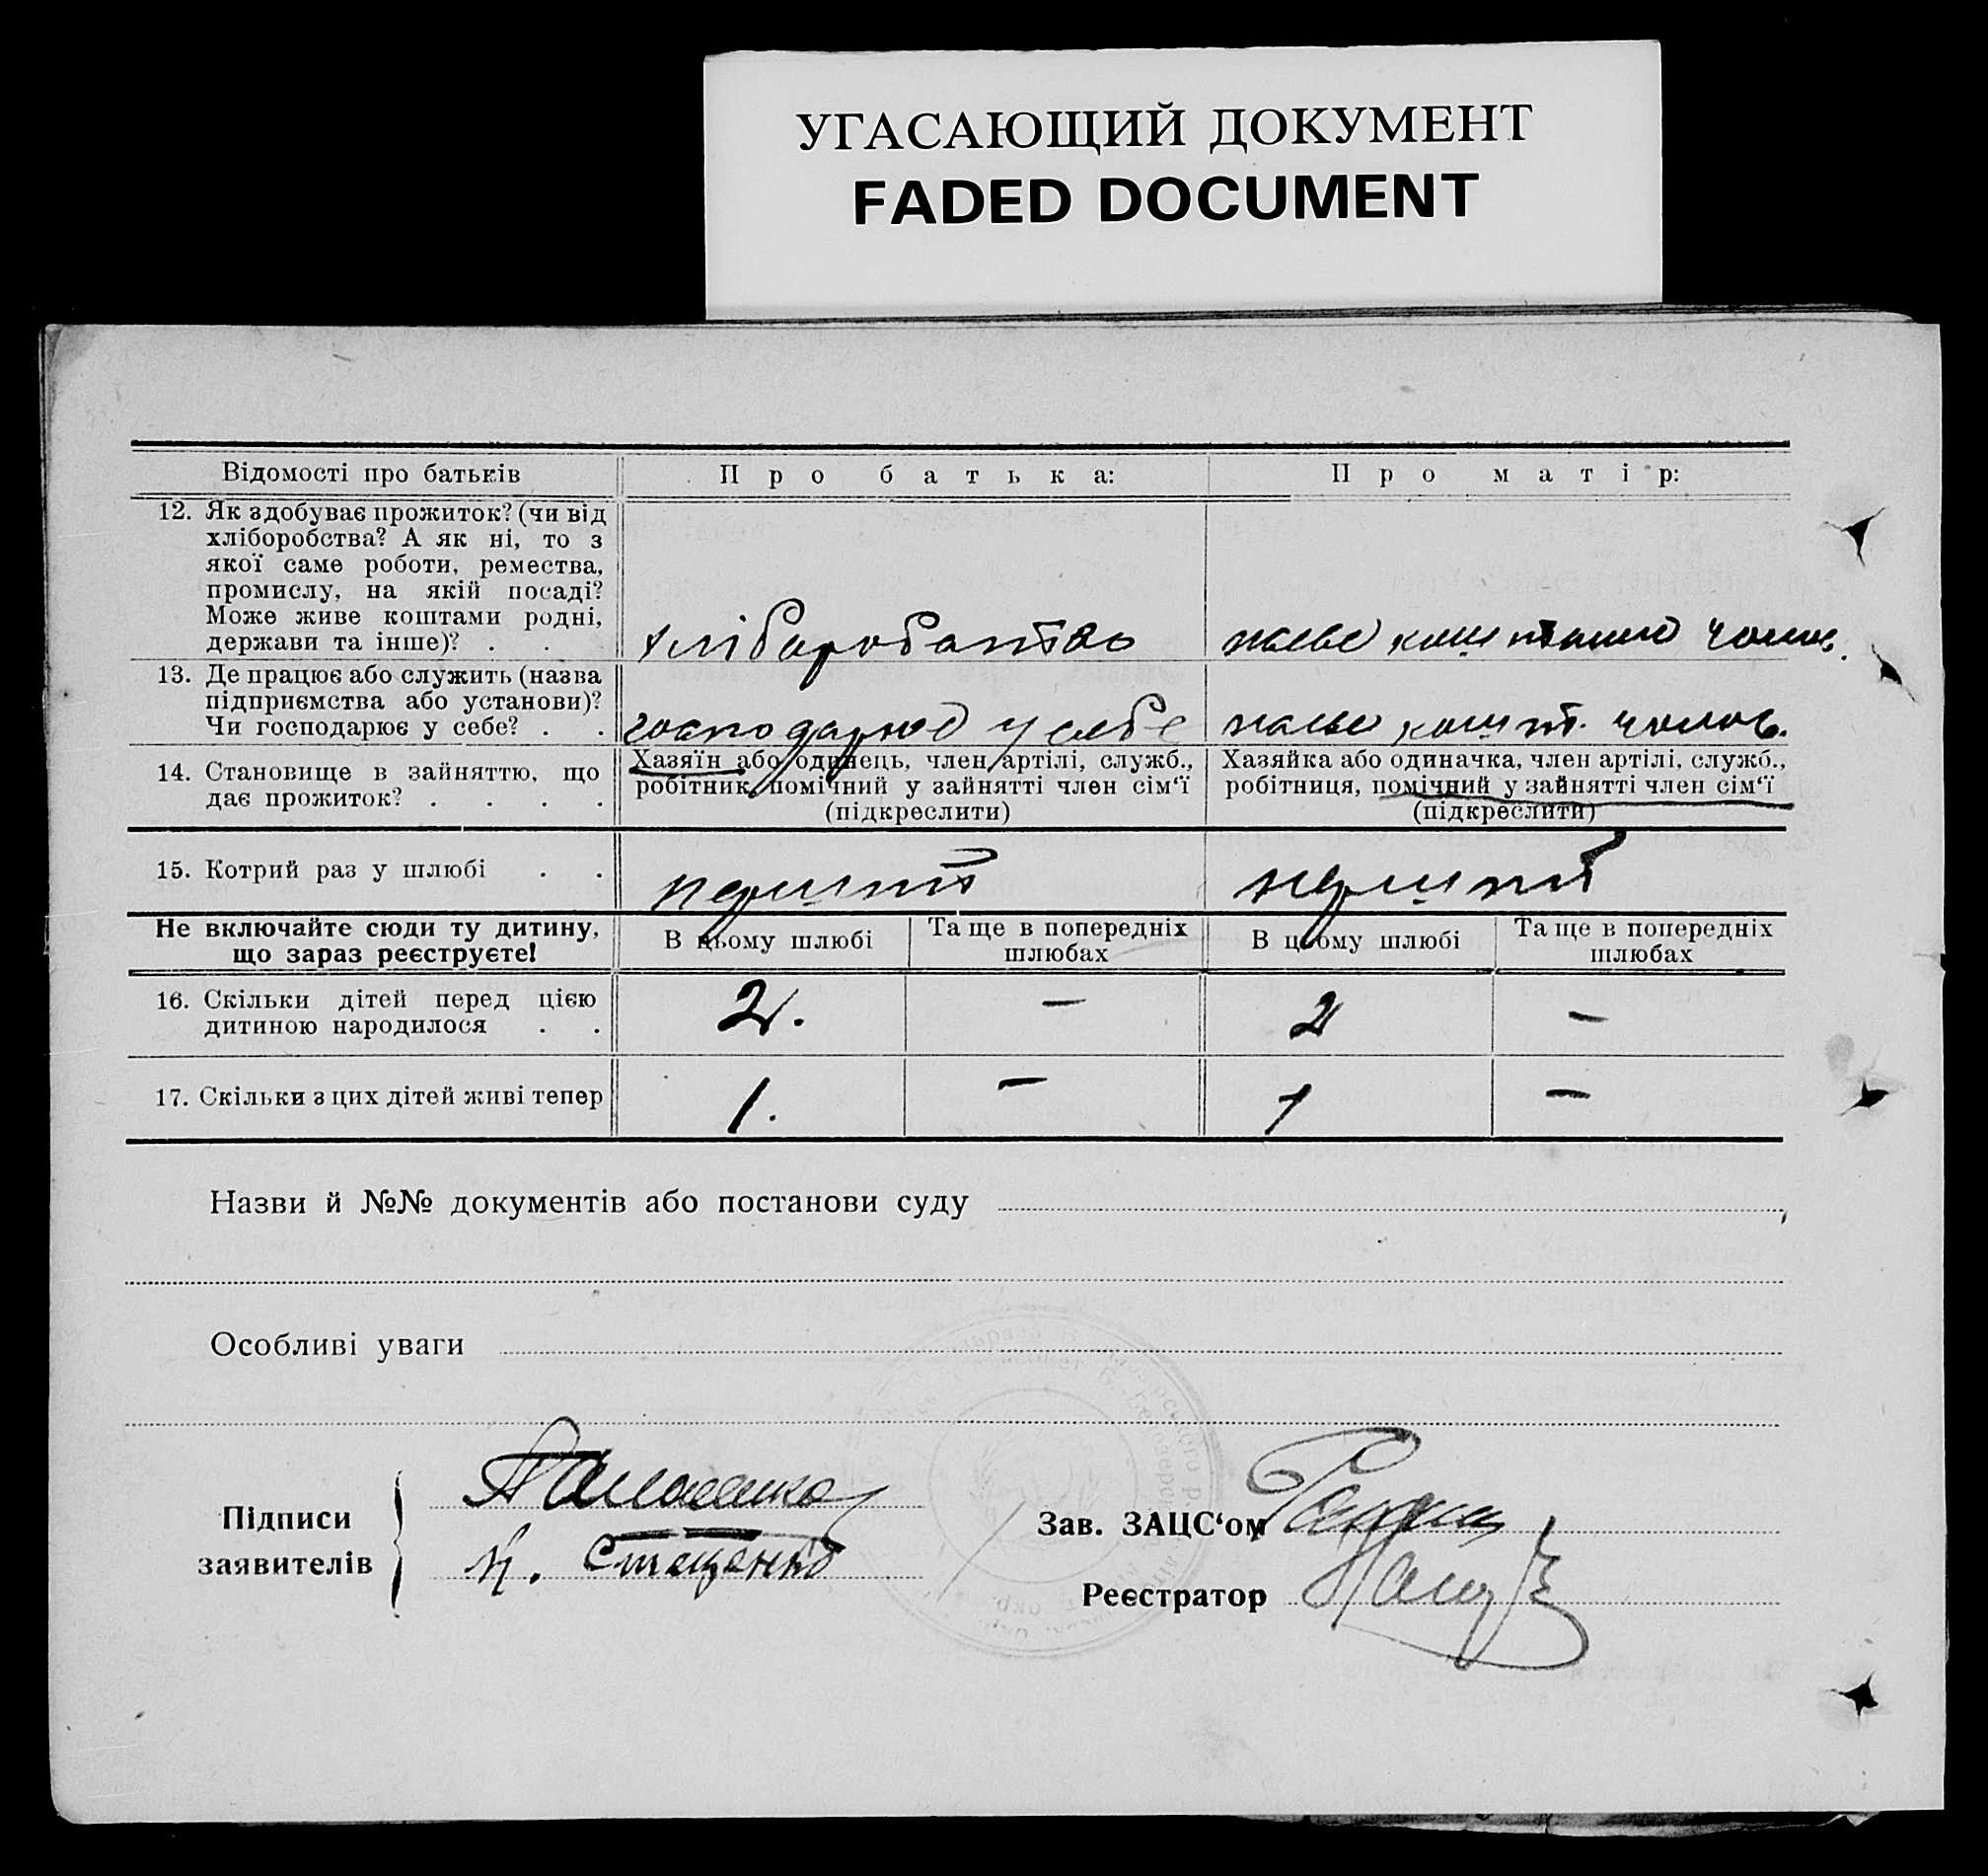 УГАСАЮЩИЙ ДОКУМЕНТ
FADED DOCUMENT
Відомості про батьків
Про батька:
Про матір:
12. Як здобуває прожиток? (чи від
хліборобства? А як ні, то з
якої саме роботи, ремества,
промислу, на якій посаді?
Може живе коштами родні,
держави та інше)? . .
хліборобство
живе коштами чолов.
13. Де працює або служить (назва
підприємства або установи)?
Чи господарює у себе? . .
господарює у себе
живе кошт. чолов.
14. Становище в зайняттю, що
дає прожиток? . . . .
Хазяїн або одинець, член артілі, служб.,
робітник, помічний у зайнятті член сім‘ї
(підкреслити)
Хазяйка або одиначка, член артілі, служб.,
робітниця, помічний у зайнятті член сім‘ї
(підкреслити)
15. Котрий раз у шлюбі . .
перший
перший
Не включайте сюди ту дитину,
що зараз реєструєте!
В цьому шлюбі
Та ще в попередніх
шлюбах
В цьому шлюбі
Та ще в попередніх
шлюбах
16. Скільки дітей перед цією
дитиною народилося . .
2. — 2 —
17. Скільки з цих дітей живі тепер
1. — 1 —
Назви й №№ документів або постанови суду
Особливі уваги
Підписи
заявителів
К. Стаценко
Зав. ЗАЦС‘ом
Реєстратор